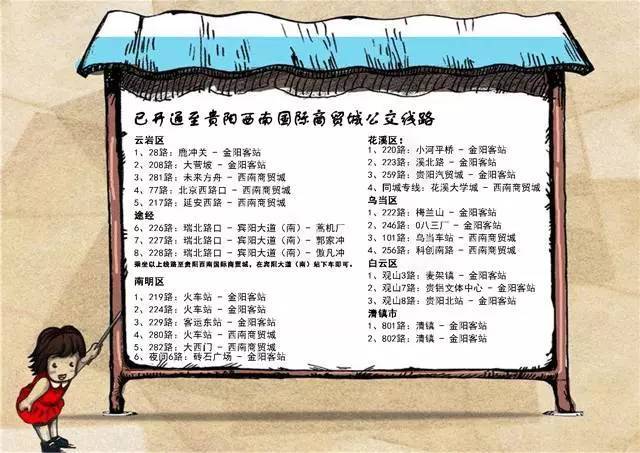 已开通至贵阳西南国际商贸城公交线路
云岩区
1、28路：鹿冲关 - 金阳客站
2、208路：大营坡 - 金阳客站
3、281路：未来方舟 - 西南商贸城
4、77路：北京西路口 - 西南商贸城
5、217路：延安西路 - 西南商贸城
途经
6、226路：瑞北路口 - 宾阳大道（南）- 蒿机厂
7、227路：瑞北路口 - 宾阳大道（南）- 郭家冲
8、228路：瑞北路口 - 宾阳大道（南）- 傲凡冲
乘坐以上线路至贵阳西南国际商贸城，在宾阳大道（南）站下车即可。
南明区
1、219路：火车站 - 金阳客站
2、224路：火车站 - 金阳客站
3、229路：客运东站 - 金阳客站
4、280路：火车站 - 西南商贸城
5、282路：大西门 - 西南商贸城
6、夜间6路：砖石广场 - 金阳客站
花溪区：
1、220路：小河平桥 - 金阳客站
2、223路：溪北路 - 金阳客站
3、259路：贵阳汽贸城 - 金阳客站
4、同城专线：花溪大学城 - 西南商贸城
乌当区
1、222路：梅兰山 - 金阳客站
2、246路：0八三厂 - 金阳客站
3、101路：乌当车站 - 西南商贸城
4、256路：科创南路 - 西南商贸城
白云区
1、观山3路：麦架镇 - 金阳客站
2、观山7路：贵铝文体中心 - 金阳客站
3、观山8路：贵阳北站 - 金阳客站
清镇市
1、801路：清镇 - 金阳客站
2、802路：清镇 - 金阳客站